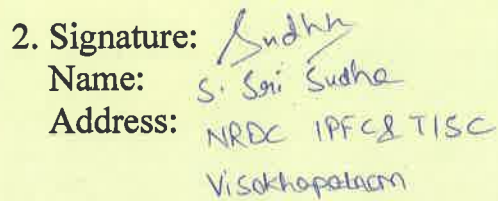 2. Signature: Sudha
Name: S. Sri Sudha
Address: NRDC IPFC & TISC
Visakhapatnam